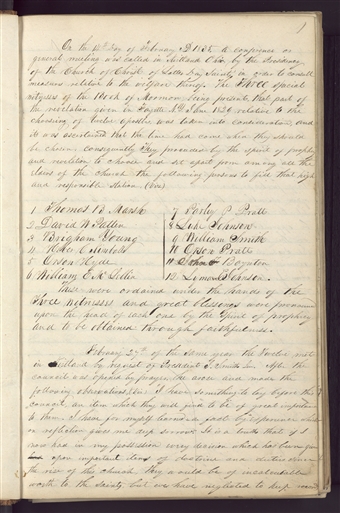 1
On the 14th day of February AD 1835. A conference or
general meeting was called in Kirtland Ohio by the Presidency
of the Church of Christ of Latter Day Saints, in order to consult
measures relative to the welfare thereof. The three special
witnesses of the Book of Mormon being present that part of
the revelation given in Fayette N.Y. June 1829 relating to the
choosing of Twelve Apostles was taken into consideration, and
it was ascertained that the time had come when they should
be chosen. Consequently They proceeded by the spirit of prophecy
and revelation to choose and set apart from among all the
Elders of the church the following persons to fill that high
and responsible station (viz)
1 Thomas B Marsh 7 Parley P Pratt
2 David W Patten 8 Luke Johnson
3 Brigham Young 9 William Smith
4 Heber C Kimball 10 Orson Pratt
5 Orson Hyde 11 John F Boynton
6 William E. McLellin 12 Lyman E Johnson.
These were ordained under the hands of the
three witnesses and great blessings were pronounced
upon the head of each one by the Spirit of prophecy
and to be obtained through faithfulness.
February 27th of the same year the Twelve met
in Kirtland by request of President J. Smith Jun. After the
council was opened by prayer he arose and made the
following observations (viz) I have something to lay before this
council, an item which they will find to be of great importance
to them. I have for myself learned a fact by experience which
on reflection gives me deep sorrow. It is a truth that if I
now had in my possession every decision which has been given
had upon important items of doctrine and duties since
the rise of this church, they would be of incalculable
worth to the saints, but we have neglected to keep